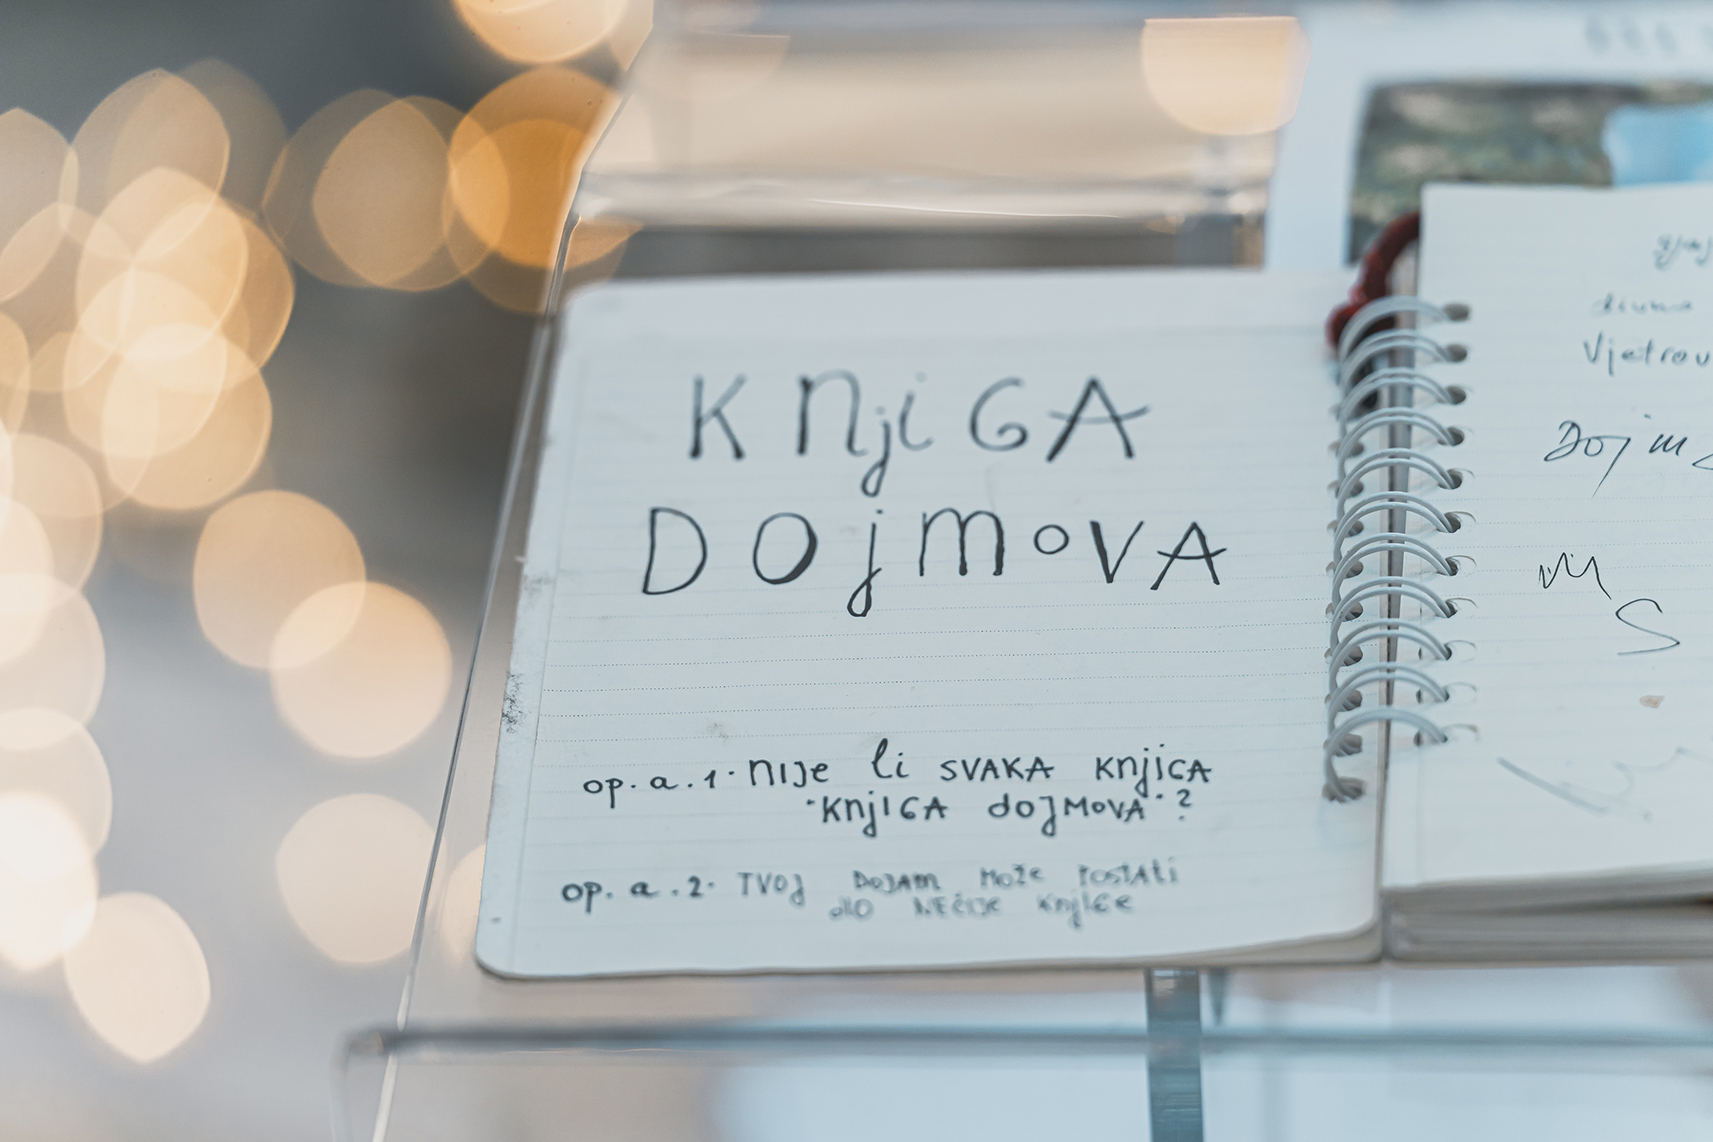 KnjiGA
DOjMoVA
op. a. 1. NIJe li SVAKA KnjiGA
"KnjIGA dOJMOVA"?
op. a. 2. TVOJ DOJAM MOŽe POSTATi
diO NEČIJE KnjIGe
Vjetrov
Dojm
M
S